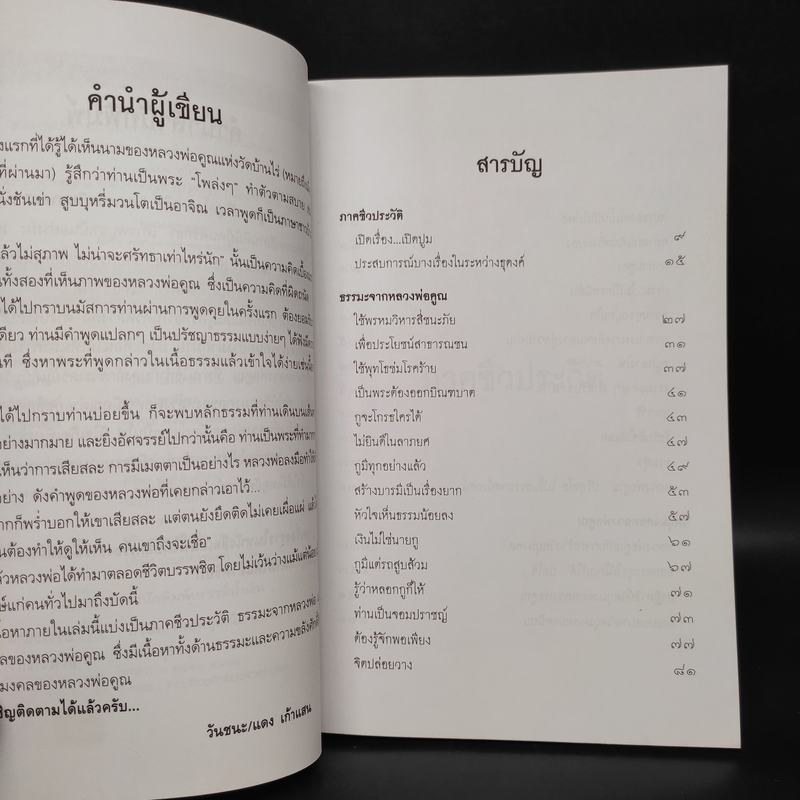 คำนำผู้เขียน
งแรกที่ได้รู้ได้เห็นนามของหลวงพ่อคูณแห่งวัดบ้านไร่
ที่ผ่านมา) รู้สึกว่าท่านเป็นพระ "โพล่งๆ" ทำตัวตามสบาย
นั่งชันเข่า สูบบุหรี่มวนโตเป็นอาจิณ เวลาพูดก็เป็นภาษา
ล้วไม่สุภาพ ไม่น่าจะศรัทธาเท่าไหร่นัก" นั้นเป็นความคิด
นทั้งสองที่เห็นภาพของหลวงพ่อคูณ ซึ่งเป็นความคิดที่ผิดถนัด
ได้ไปกราบนมัสการท่านผ่านการพูดคุยในครั้งแรก ต้องยอม
เดียว ท่านมีคำพูดแปลกๆ เป็นปรัชญาธรรมแบบง่ายๆ ได้ฟัง
นที ซึ่งหาพระที่พูดกล่าวในเนื้อธรรมแล้วเข้าใจได้ง่ายเช่นนี้
ได้ไปกราบท่านบ่อยขึ้น ก็จะพบหลักธรรมที่ท่านเดินบน
อย่างมากมาย และยิ่งอัศจรรย์ไปกว่านั้นคือ ท่านเป็นพระที่ทำ
เห็นว่าการเสียสละ การมีเมตตาเป็นอย่างไร หลวงพ่อลงมือทำให้
อย่าง ดังคำพูดของหลวงพ่อที่เคยกล่าวเอาไว้...
ากก็พร่ำบอกให้เขาเสียสละ แต่ตนยังยึดติดไม่เคยเผื่อแผ่ แล้ว
นต้องทำให้ดูให้เห็น คนเขาถึงจะเชื่อ"
ล้วหลวงพ่อได้ทำมาตลอดชีวิตบรรพชิต โดยไม่เว้นว่างแม้แต่น้อย
ษ์แก่คนทั่วไปมาถึงบัดนี้
นื้อหาภายในเล่มนี้แบ่งเป็นภาคชีวประวัติ ธรรมะจากหลวงพ่อ
ลของหลวงพ่อคูณ ซึ่งมีเนื้อหาทั้งด้านธรรมะและความขลังศักดิ์
มงคลของหลวงพ่อคูณ
ชิญติดตามได้แล้วครับ...
วันชนะ/แดง เก้าแสน
สารบัญ
ภาคชีวประวัติ
เปิดเรื่อง...เปิดปูม ๙
ประสบการณ์บางเรื่องในระหว่างธุดงค์ ๑๕
ธรรมะจากหลวงพ่อคูณ
ใช้พรหมวิหารสี่ชนะภัย ๒๗
เพื่อประโยชน์สาธารณชน ๓๑
ใช้พุทโธข่มโรคร้าย ๓๗
เป็นพระต้องออกบิณฑบาต ๔๑
กูจะโกรธใครได้ ๔๓
ไม่ยินดีในลาภยศ ๔๗
กูมีทุกอย่างแล้ว ๔๙
สร้างบารมีเป็นเรื่องยาก ๕๓
หัวใจเห็นธรรมน้อยลง ๕๗
เงินไม่ใช่นายกู ๖๑
กูมีแต่รถสูบส้วม ๖๗
รู้ว่าหลอกกูก็ให้ ๗๑
ท่านเป็นจอมปราชญ์ ๗๓
ต้องรู้จักพอเพียง ๗๗
จิตปล่อยวาง ๘๑